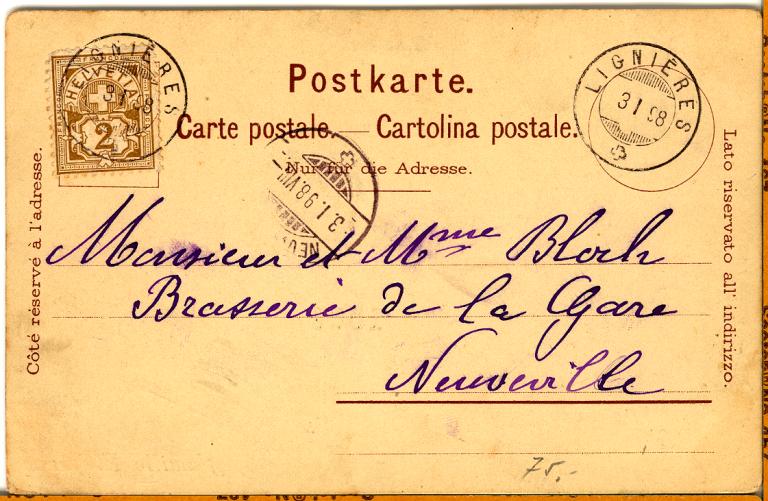 LIGNIÈRES
3 I 98
HELVETIA
2
LIGNIÈRES
3 I 98
Postkarte.
Carte postale. — Cartolina postale.
Nur für die Adresse.
3.I.98.VIII
NEUV
Côté réservé à l'adresse.
Lato riservato all' indirizzo.
Monsieur et Mme Bloch
Brasserie de la Gare
Neuveville
75.-